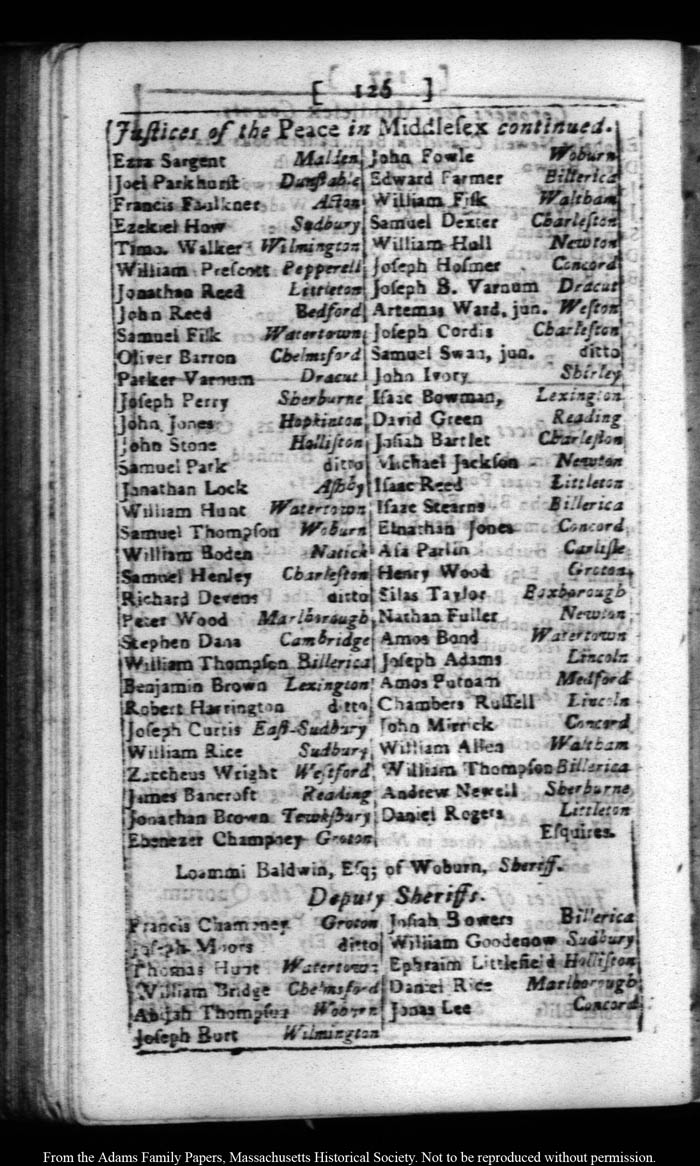 [ 126 ]
Juſtices of the Peace in Middleſex continued.
Ezra Sargent Malden
Joel Parkhurſt Dunſtable
Francis Faulkner Acton
Ezekiel How Sudbury
Timo. Walker Wilmington
William Preſcott Pepperell
Jonathan Reed Littleton
John Reed Bedford
Samuel Fiſk Watertown
Oliver Barron Chelmsford
Parker Varnum Dracut
Joſeph Perry Sherburne
John Jones Hopkinton
John Stone Holliſton
Samuel Park ditto
Jonathan Lock Aſhby
William Hunt Watertown
Samuel Thompſon Woburn
William Boden Natick
Samuel Henley Charleſton
Richard Devens ditto
Peter Wood Marlborough
Stephen Dana Cambridge
William Thompſon Billerica
Benjamin Brown Lexington
Robert Harrington ditto
Joſeph Curtis Eaſt-Sudbury
William Rice Sudbury
Zaccheus Wright Weſtford
James Bancroft Reading
Jonathan Brown Tewkſbury
Ebenezer Champney Groton
John Fowle Woburn
Edward Farmer Billerica
William Fiſk Waltham
Samuel Dexter Charleſton
William Hull Newton
Joſeph Hoſmer Concord
Joſeph B. Varnum Dracut
Artemas Ward, jun. Weſton
Joſeph Cordis Charleſton
Samuel Swan, jun. ditto
John Ivory Shirley
Iſaac Bowman, Lexington
David Green Reading
Joſiah Bartlet Charleſton
Michael Jackſon Newton
Iſaac Reed Littleton
Iſaac Stearns Billerica
Elnathan Jones Concord
Aſa Parlin Carliſle
Henry Wood Groton
Silas Taylor Boxborough
Nathan Fuller Newton
Amos Bond Watertown
Joſeph Adams Lincoln
Amos Putnam Medford
Chambers Ruſſell Lincoln
John Merrick Concord
William Allen Waltham
William Thompſon Billerica
Andrew Newell Sherburne
Daniel Rogers Littleton
Eſquires.
Loammi Baldwin, Eſq; of Woburn, Sheriff.
Deputy Sheriffs.
Francis Champney Groton
Joſeph Moors ditto
Thomas Hunt Watertown
William Bridge Chelmsford
Abijah Thompſon Woburn
Joſeph Burt Wilmington
Joſiah Bowers Billerica
William Goodenow Sudbury
Ephraim Littlefield Holliſton
Daniel Rice Marlborough
Jonas Lee Concord
From the Adams Family Papers, Massachusetts Historical Society. Not to be reproduced without permission.